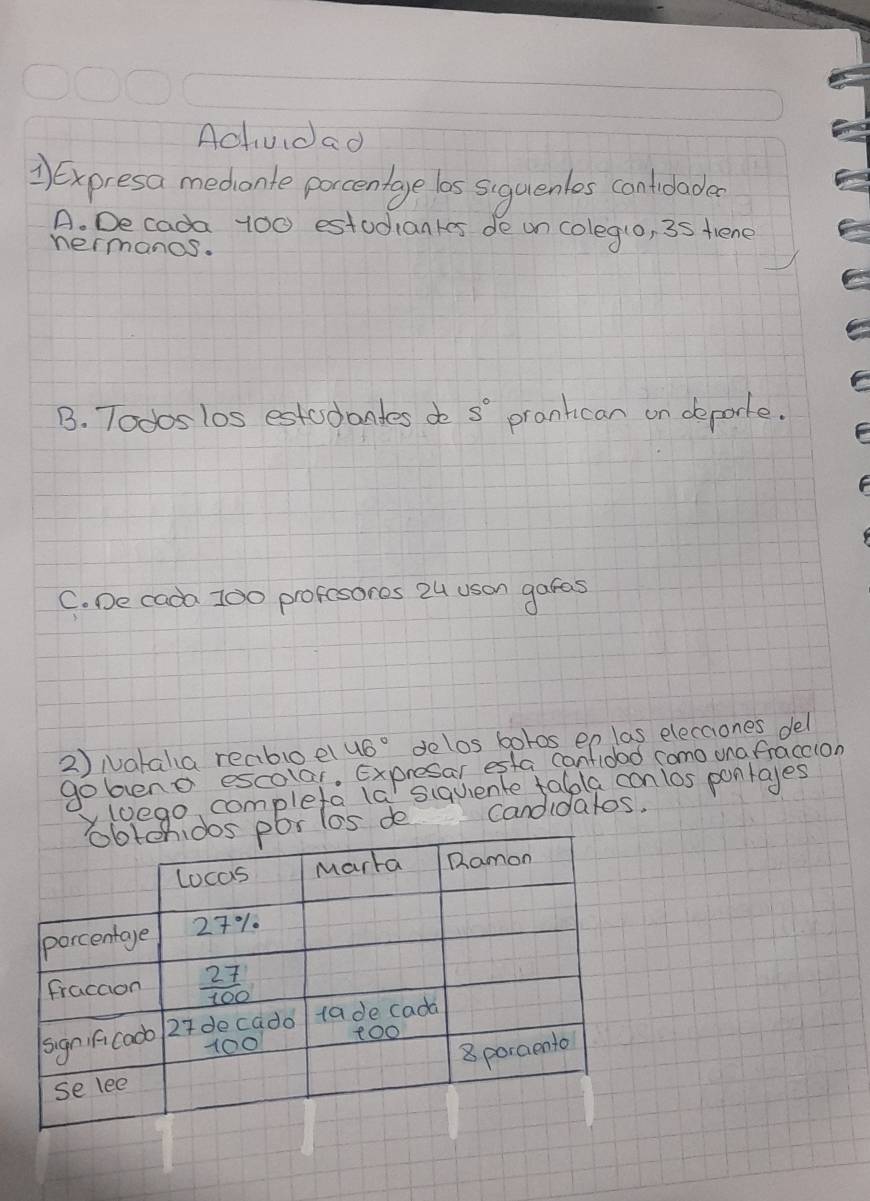 Actividad
1) Expresa mediante porcentaje los siguientes cantidades
A. De cada 100 estudiantes de un colegio, 35 tiene
hermanos.
B. Todos los estudantes de 5° prantican un deporte.
C. De cada 100 profesores 24 uson gafas
2) Natalia reabio el 46° delos botos en las elecciones del
gobieno escolar. Expresar esta cantidad como una fraccion
y luego completa la siquiente tabla con los pontajes
obtenidos por los de candidatos.
Lucas Marta Ramon
porcentaje 27%
fraccion 27/100
significado 27 de cado 100 19 de cada 100
se lee 8 porciento